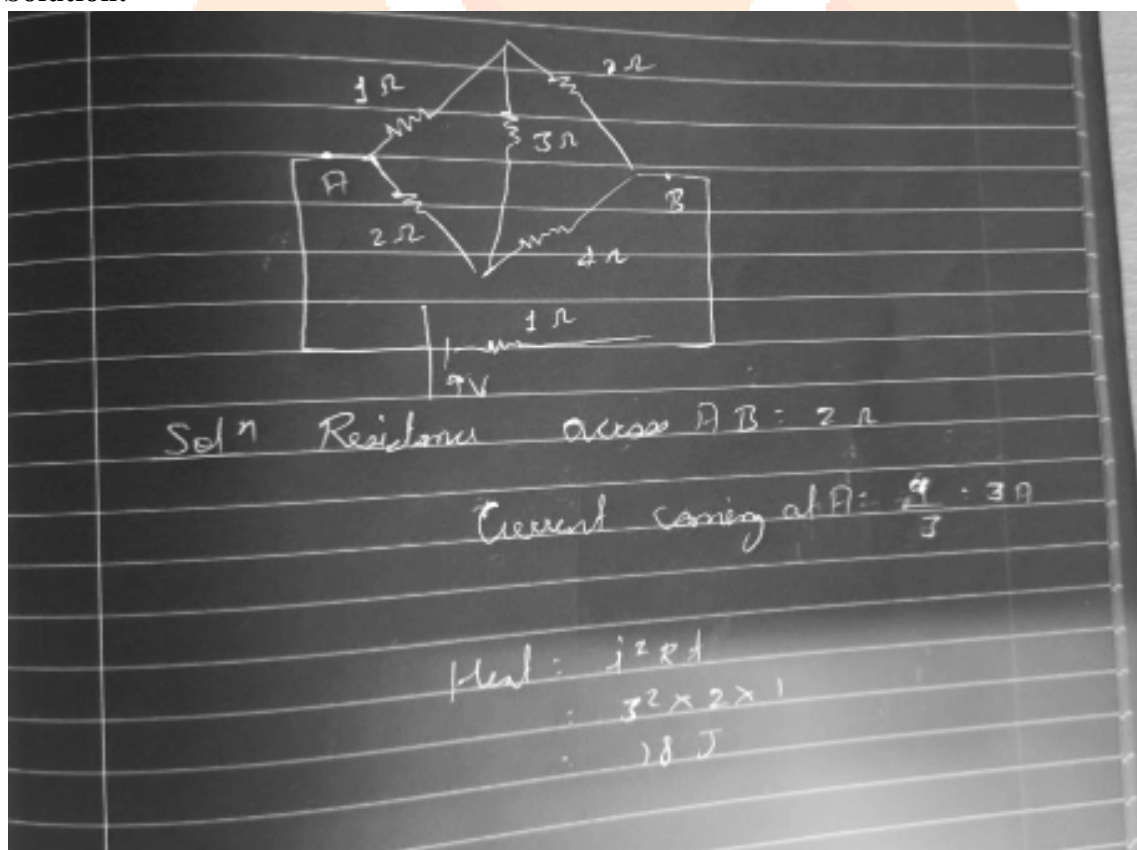 Solution:
1 Ω
2 Ω
3 Ω
A
B
2 Ω
4 Ω
1 Ω
9V
Solⁿ Resistance across AB : 2 Ω
Current coming at A : 9/3 : 3A
Heat : i² R t
: 3² × 2 × 1
: 18 J